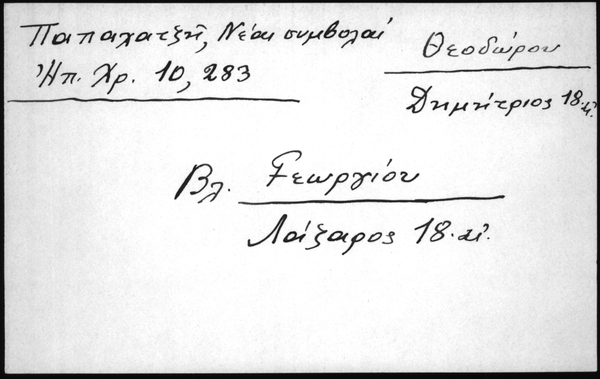 Παπαχατζῆ, Νέαι συμβολαί
Ἠπ. Χρ. 10, 283
Θεοδώρου
Δημήτριος 18. αἰ.
Βλ. Γεωργίου
Λάζαρος 18. αἰ.